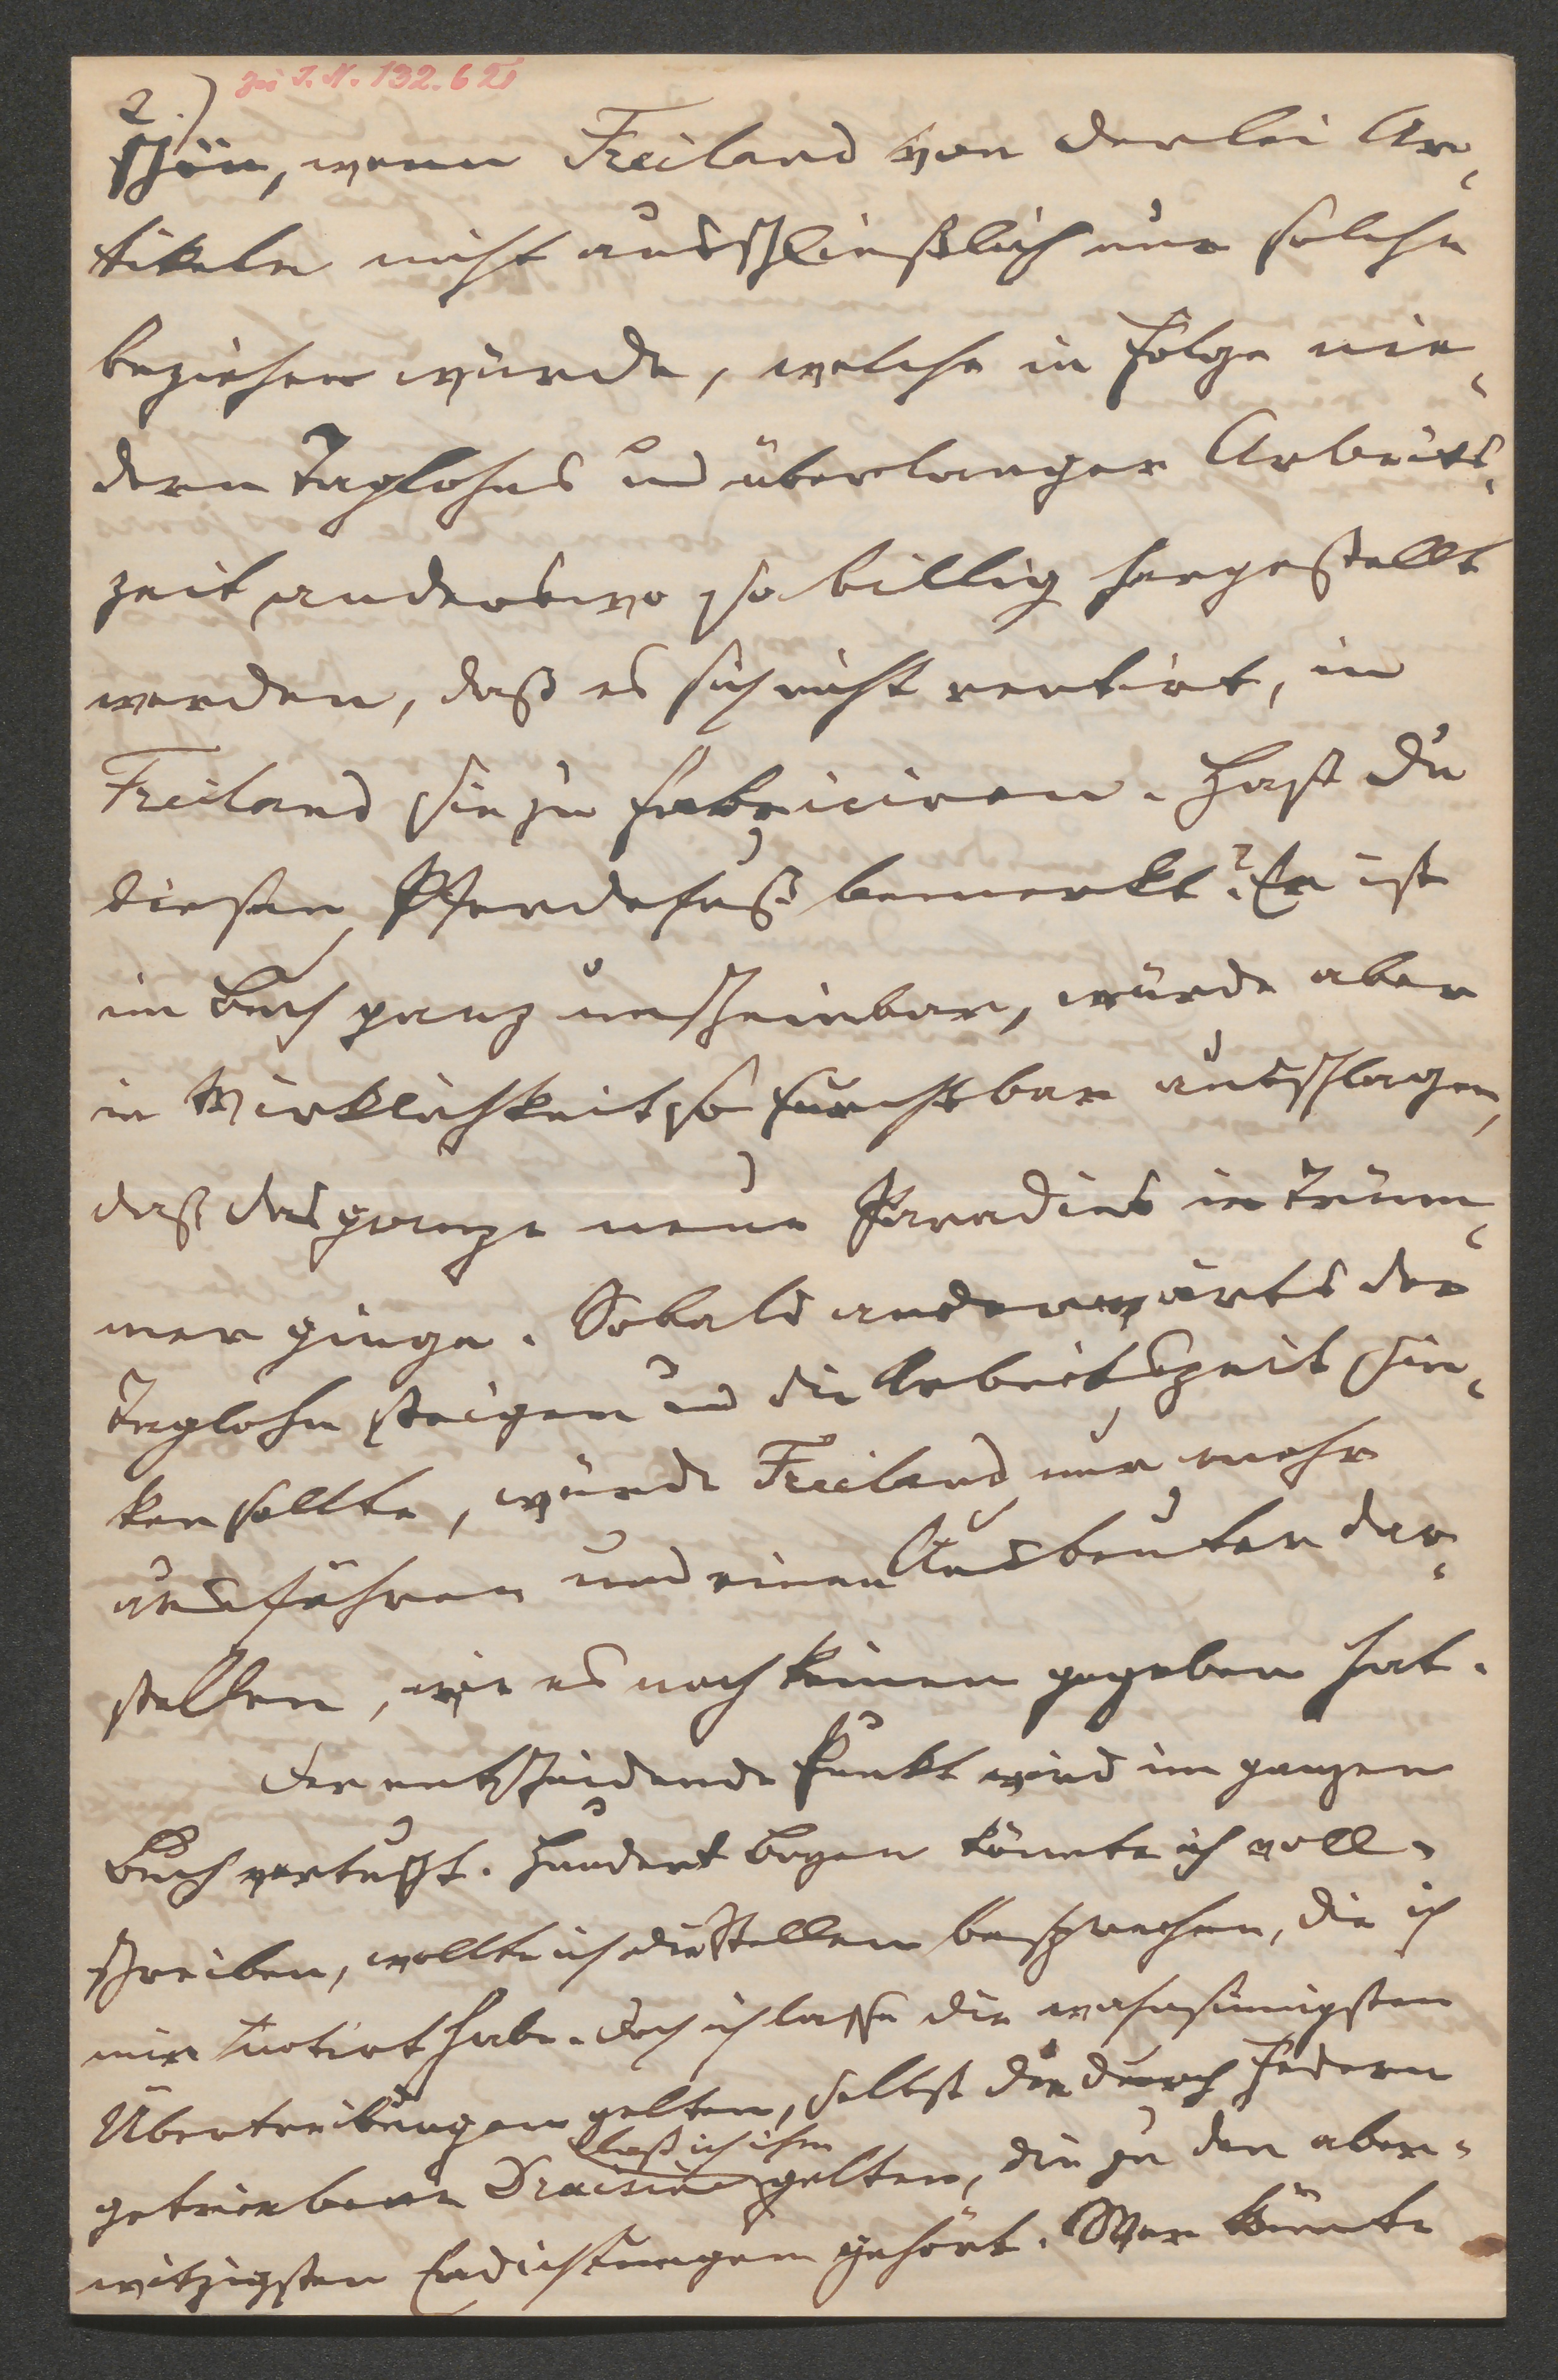 zu I. N. 132.621
2.)
schön, wenn Freiland von derlei Ar-
tikeln nicht ausschließlich nur solche
beziehen würde, welche in Folge nie-
dern Taglohns und überlanger Arbeits-
zeit anderswo so billig hergestellt
werden, daß es sich nicht rentirt, in
Freiland sie zu fabriciren. Hast Du
diesen Pferdefuß bemerkt? Er ist
im Buch ganz unscheinbar, würde aber
in Wirklichkeit so furchtbar ausschlagen,
daß das ganze neue Paradies in Trüm-
mer ginge. Sobald anderwärts der
Taglohn steigen und die Arbeitszeit sin-
ken sollte, würde Freiland nur mehr
ausführen und einen Ausbeuter dar-
stellen, wie es noch keinen gegeben hat.
Der entscheidende Punkt wird im ganzen
Buch vertuscht. Hundert Bogen könnte ich voll-
schreiben, wollte ich die Stellen besprechen, die ich
mir notirt habe. Doch ich lasse die wahnsinnigsten
Übertreibungen gelten, selbst die durch Federn
laß ich ihm
getriebene Draisine gelten, die zu den aber-
witzigsten Erdichtungen gehört. Wer könnte